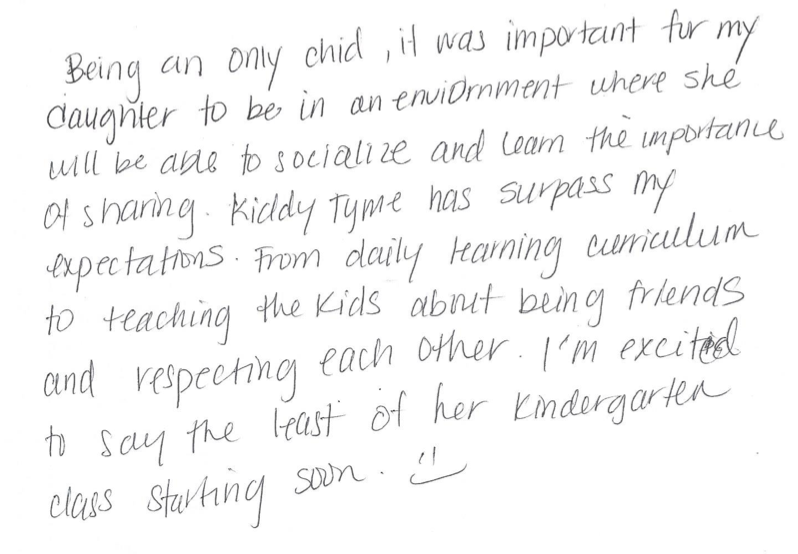 Being an only chid, it was important for my
daughter to be in an enviornment where she
will be able to socialize and learn the importance
of sharing. Kiddy Tyme has surpass my
expectations. From daily learning curriculum
to teaching the kids about being friends
and respecting each other. I'm excited
to say the least of her kindergarten
class starting soon. :)